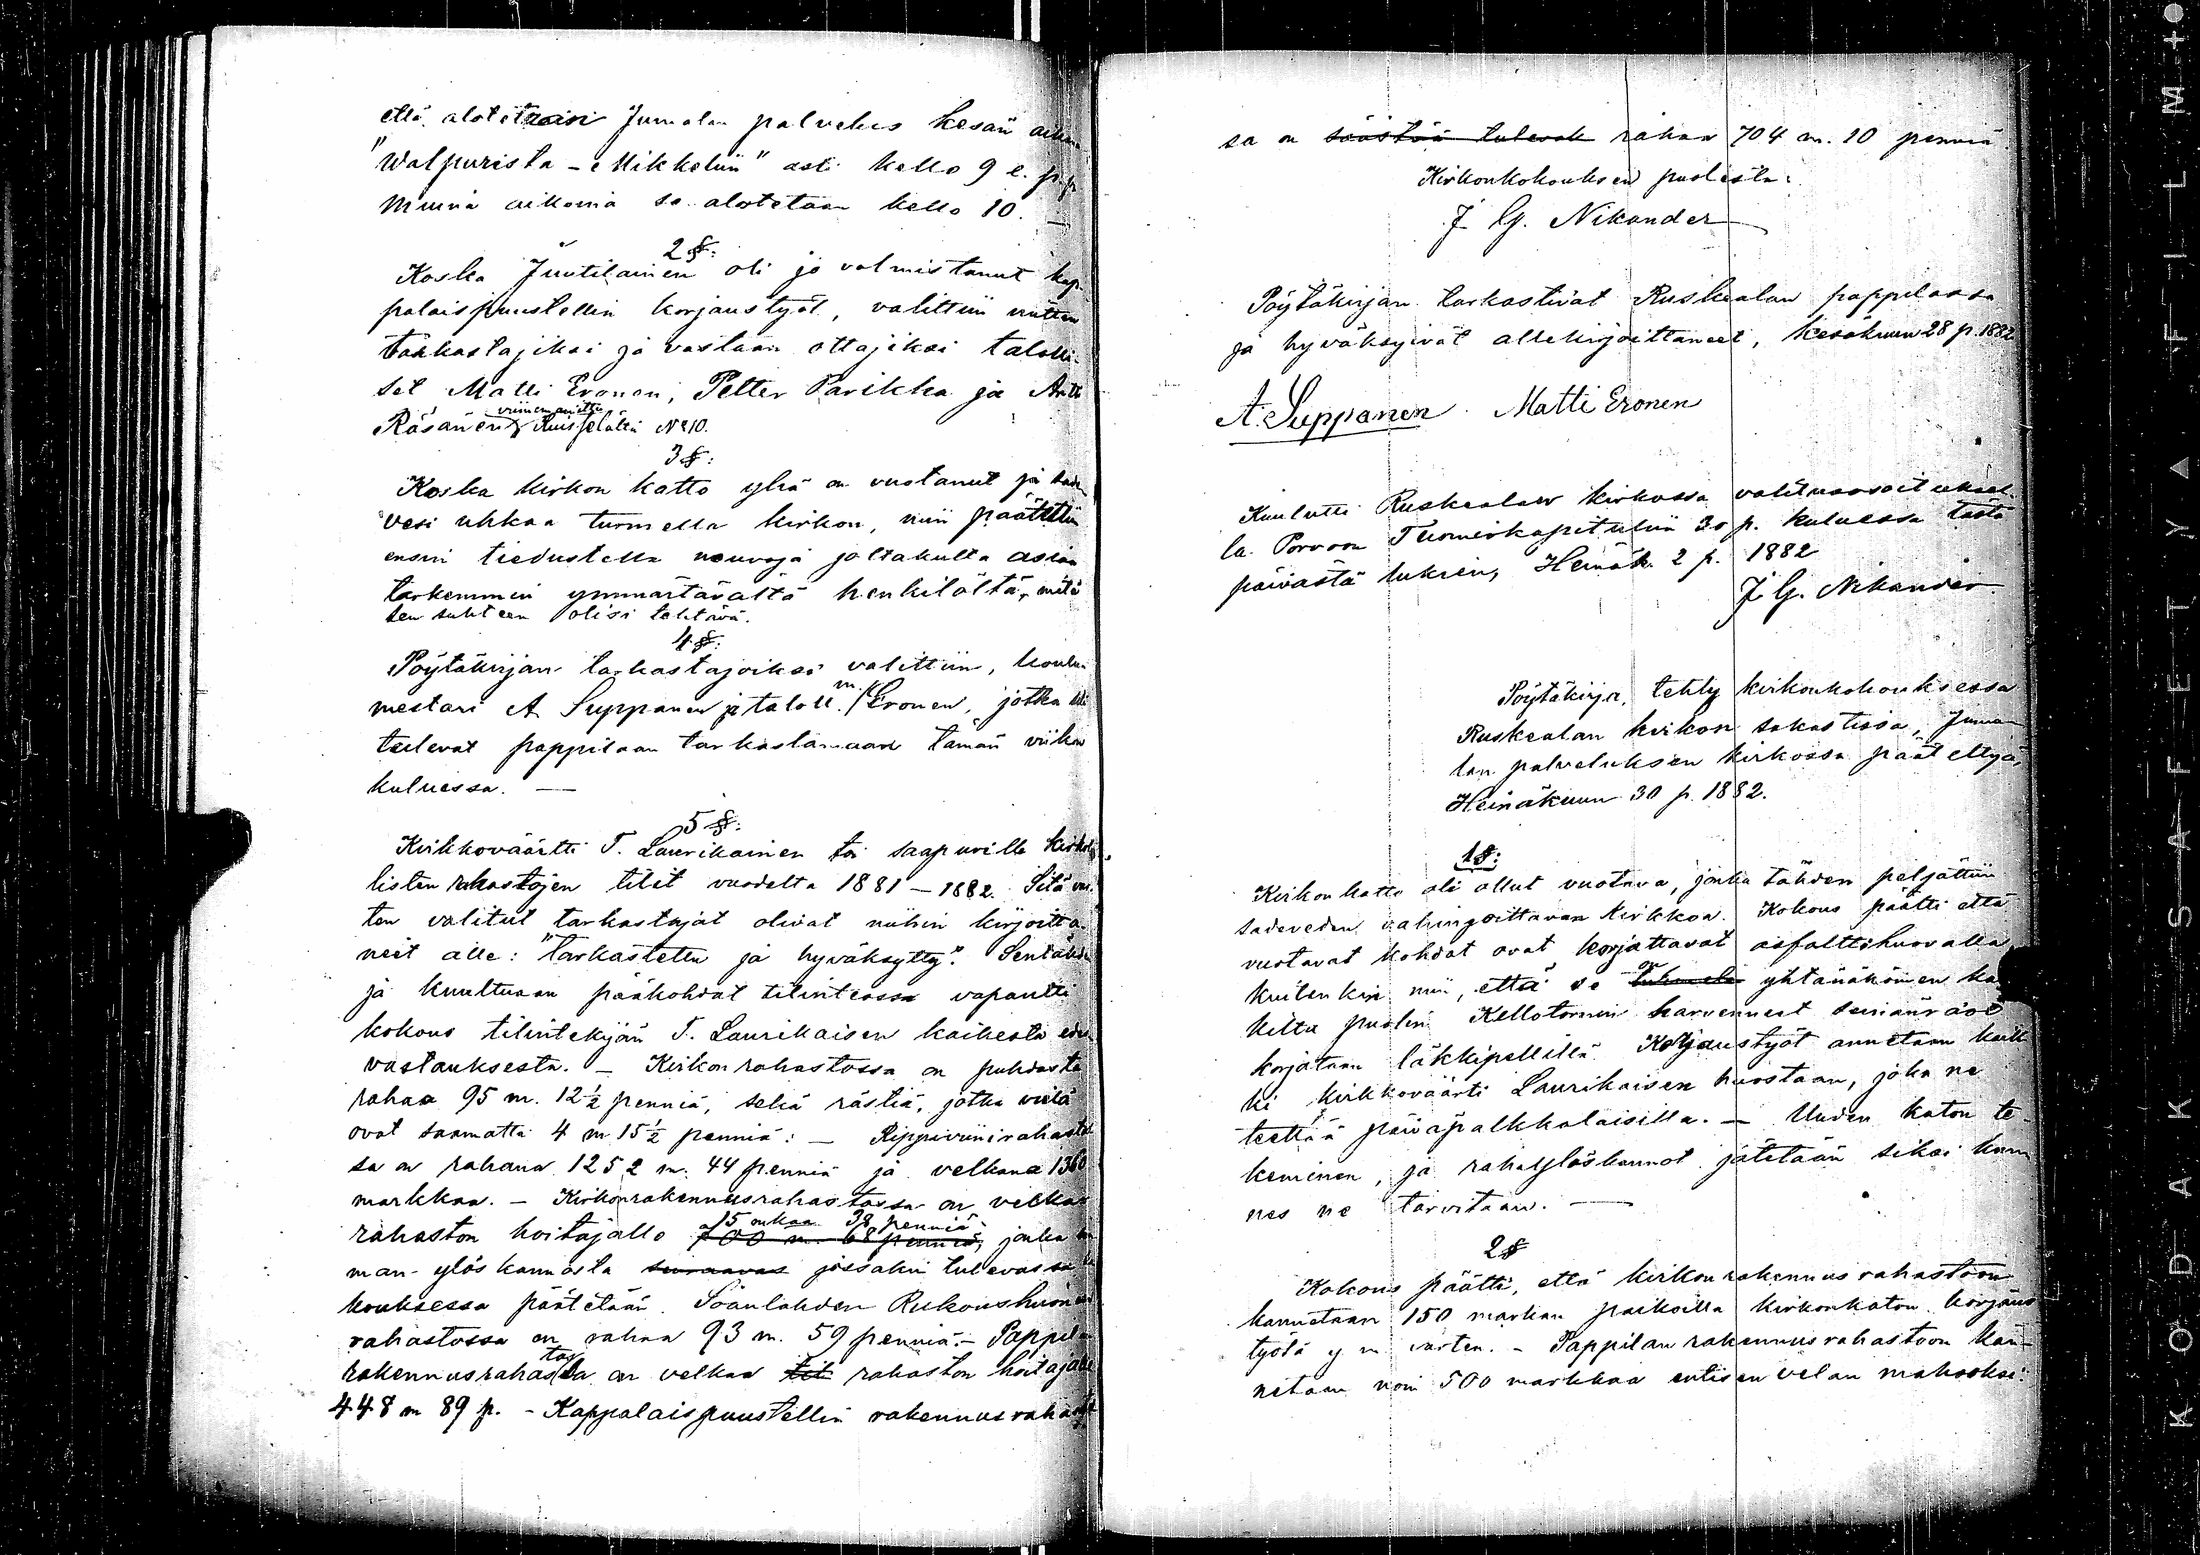 että alotettaisi Jumalan palvelus kesän aikana
"Walpurista - Mikkeliin" asti kello 9 e. p.p.
Muina aikoina se alotetaan kello 10. —
2 §:
Koska Juutilainen oli jo valmistanut kap-
palaispuustellin korjaustyöt, valittiin niitten
tarkastajiksi ja vastaan ottajiksi talolli-
set Matti Eronen, Petter Parikka ja Antti
viimemainittu
Räsänen Ruis selältä No 10.
3 §:
Koska kirkon katto yhä on vuotanut ja sade
vesi uhkaa turmella kirkon, niin päätettiin
ensin tiedustella neuvoja joltakulta asian
tarkemmin ymmärtävältä henkilöltä, mitä
sen suhteen olisi tehtävä.
4 §:
Pöytäkirjan tarkastajoiksi valittiin, koulu-
mestari A Suppanen ja taloll. M. Eronen, jotka
tulevat pappilaan tarkastamaan tämän viikon
kuluessa. —
5 §:
Kirkkoväärtti T. Laurikainen toi saapuville kirkol-
listen rahastojen tilit vuodelta 1881 – 1882. Sitä var-
ten valitut tarkastajat olivat niihin kirjoitta-
neet alle: "tarkastettu ja hyväksytty". Sentähden
ja kuultuaan pääkohdat tilinteossa vapautti
kokous tilintekijän T. Laurikaisen kaikesta edes
vastauksesta. – Kirkon rahastossa on puhdasta
rahaa 95 m. 12½ penniä, sekä rästiä, jotka vielä
ovat saamatta 4 m 15½ penniä: – Rippiviinirahastos
sa on rahana 1252 m. 44 penniä ja velkana 1360
markkaa. – Kirkonrakennusrahastossa on velkaa
15 mkaa 38 penniä
rahaston hoitajalle 700 m. 68 penniä, jonka
man ylöskannosta seuraavas jossakin tulevassa ko
kouksessa päätetään. Soanlahden Rukoushuoneen
rahastossa on rahaa 93 m. 59 penniä. – Pappilan
rakennusrahastossa on velkaa til rahaston hoitajalle
448 m 89 p. – Kappalaispuustellin rakennusrahastos
sa on säästöä tulevak rahaa 704 m. 10 penniä
Kirkonkokouksen puolesta:
J G. Nikander
Pöytäkirjan tarkastivat Ruskealan pappilassa
ja hyväksyivät allekirjoittaneet, kesäkuun 28 p. 1882
A. Suppanen Matti Eronen
Kuulutti Ruskealan kirkossa valitusosoituksel-
la Porvoon Tuomiokapituliin 30 p. kuluessa tästä
päivästä lukien, Heinäk. 2 p. 1882
J. G. Nikander.
Pöytäkirja, tehty kirkonkokouksessa
Ruskealan kirkon sakastissa, Juma-
lan palveluksen kirkossa päätettyä,
Heinäkuun 30 p. 1882.
1 §:
Kirkon katto oli ollut vuotava, jonka tähden peljättiin
sadeveden vahingoittavan kirkkoa. Kokous päätti että
vuotavat kohdat ovat korjattavat asfalttihuovalla
kuitenkin niin, että se on yhtänäköinen kai
kilta puolin Kellotornin harvennut seinänraot
korjataan läkkipellillä. Korjaustyöt annetaan kaik
ki kirkkoväärti Laurikaisen huostaan, joka ne
teettää päiväpalkkalaisilla. – Uuden katon te-
keminen, ja rahaylöskannot jätetään siksi kun-
nes ne tarvitaan. —
2 §
Kokous päätti, että kirkonrakennusrahastoon
kannetaan 150 markan paikoilla kirkonkaton korjaus
työtä y m varten. – Pappilan rakennusrahastoon kan-
netaan noin 500 markkaa entisen velan maksoksi.
KODAK SAFETY FILM